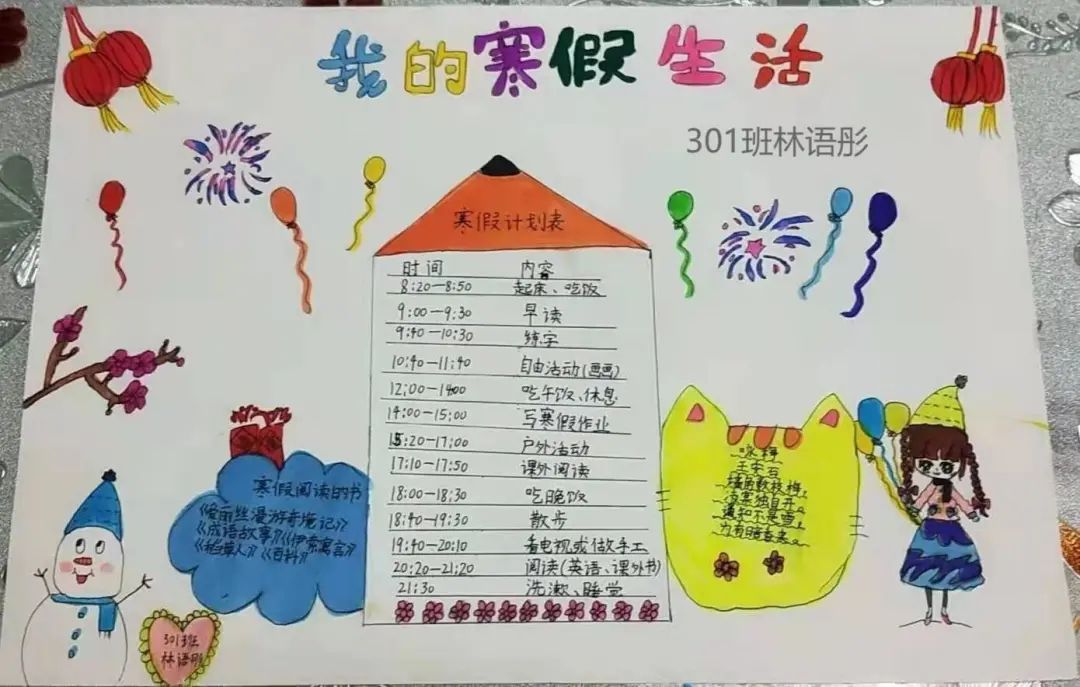 我的寒假生活
301班林语彤
寒假计划表
时间 内容
8:20—8:50 起床、吃饭
9:00—9:30 早读
9:40—10:30 练字
10:40—11:40 自由活动(画画)
12:00—1400 吃午饭、休息
14:00—15:00 写寒假作业
15:20—17:00 户外活动
17:10—17:50 课外阅读
18:00—18:30 吃晚饭
18:40—19:30 散步
19:40—20:10 看电视或做手工
20:20—21:20 阅读(英语、课外书)
21:30 洗漱、睡觉
寒假阅读的书
《爱丽丝漫游奇境记》
《成语故事》《伊索寓言》
《稻草人》《百科》
咏梅
王安石
墙角数枝梅,
凌寒独自开
遥知不是雪
为有暗香来
301班
林语彤